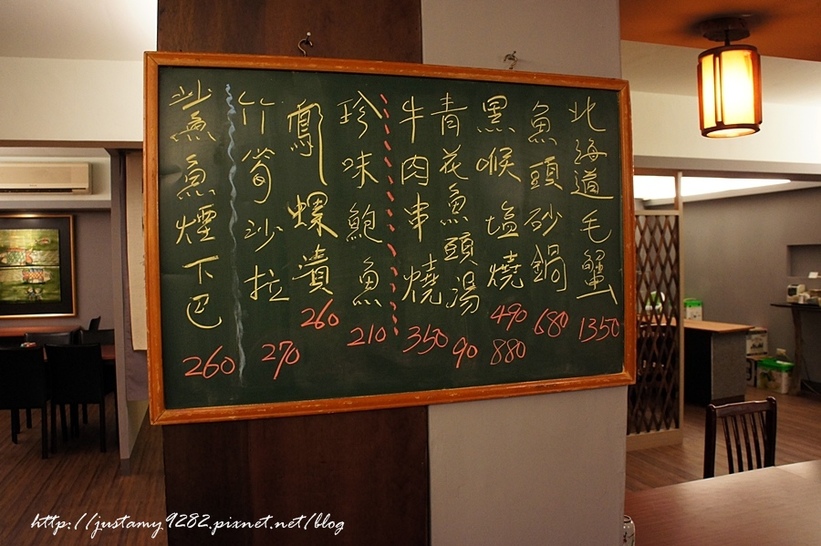 北海道毛蟹 1350
魚頭砂鍋 680
黑喉塩燒 490 880
青花魚頭湯 90
牛肉串燒 350
珍味鮑魚 210
鳳螺漬 260
竹筍沙拉 270
鯊魚煙下巴 260
http://justamy9282.pixnet.net/blog